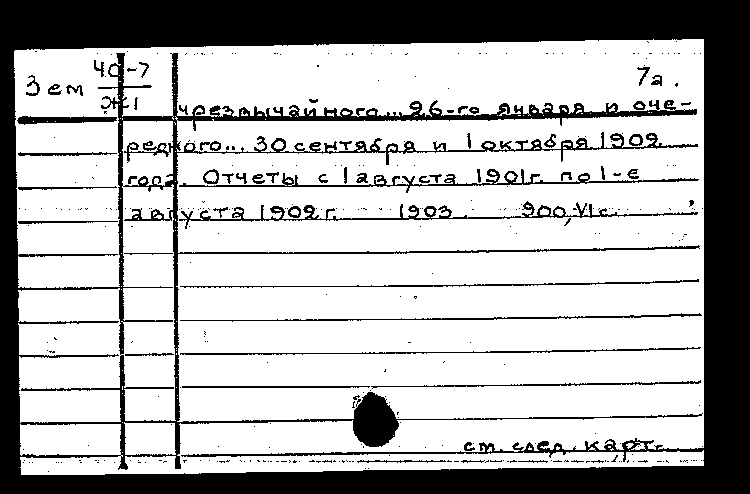 Зем 40-7 7а.
Ж1
чрезвычайного... 26-го января и оче-
редного... 30 сентября и 1 октября 1902
года. Отчеты с 1 августа 1901г. по 1-е
августа 1902г. 1903. 900, VI с.
ст. след. карт.